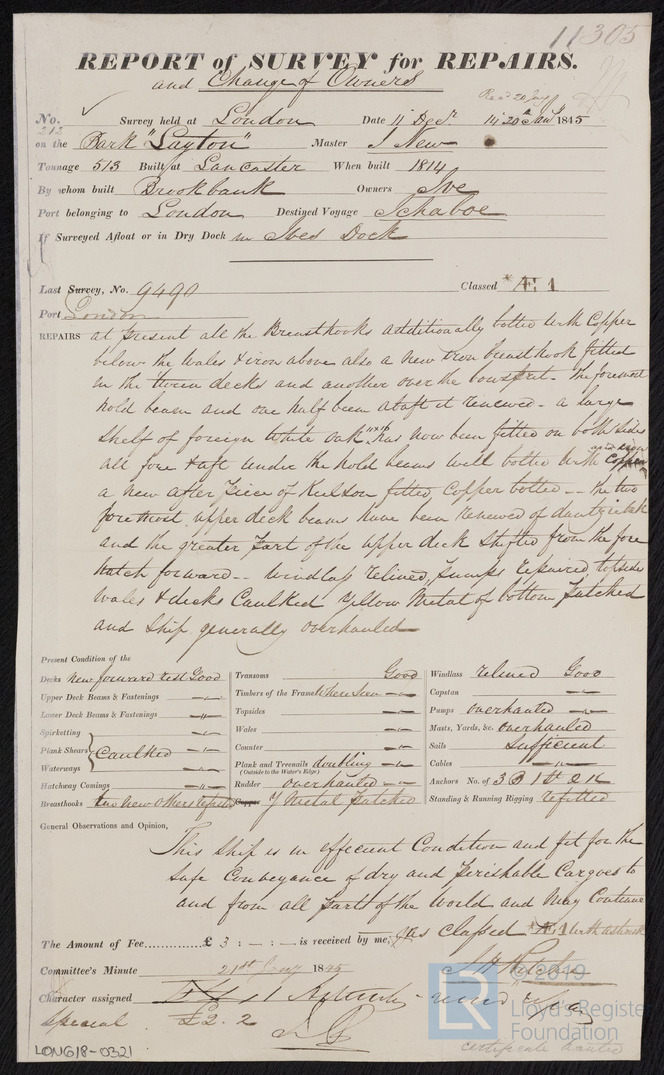 11305
REPORT of SURVEY for REPAIRS.
and Change of Owners
No. 212 Survey held at London Date 11 Decr. 14 20th Jany 1845
on the Bark "Layton" Master J New
Tonnage 513 Built at Lancaster When built 1814
By whom built Brookbank Owners Ive
Port belonging to London Destined Voyage Ichaboe
If Surveyed Afloat or in Dry Dock in Ives Dock
Last Survey, No. 9490 Classed *Æ 1
Port London
REPAIRS at present all the Breasthooks additionally bolted with Copper
below the Wales & iron above also a new iron breasthook fitted
in the tween decks and another over the bowsprit - the foremost
hold beam and one half beam abaft it renewed - a large
shelf of foreign White oak has now been fitted on both sides
all fore & aft under the hold beams well bolted with Copper and iron
a new after piece of Keelson fitted, Copper bolted -- the two
foremost upper deck beams have been renewed of dantzic oak
and the greater part of the upper deck shifted from the fore
hatch forward -- windlass relined, pumps repaired topsides
Wales & decks Caulked yellow Metal of bottom patched
and ship generally overhauled
Present Condition of the
Decks new forward rest Good
Upper Deck Beams & Fastenings -"-
Lower Deck Beams & Fastenings -"-
Spirketting -"-
Plank Shears Caulked -"-
Waterways -"-
Hatchway Comings -"-
Breasthooks two new others refastd
Transoms Good
Timbers of the Frame Where seen -"-
Topsides -"-
Wales -"-
Counter -"-
Plank and Treenails doubling -"-
(Outside to the Water's Edge)
Rudder overhauled -"-
Copper Y Metal patched
Windlass relined Good
Capstan -"-
Pumps overhauled -"-
Masts, Yards, &c. overhauled
Sails Sufficient
Cables -"-
Anchors No. of 3 B 1 St 2 K
Standing & Running Rigging refitted
General Observations and Opinion,
This Ship is in efficient Condition and fit for the
safe Conveyance of dry and perishable Cargoes to
and from all parts of the World and May Continue
as classed *Æ 1 with asterisk
The Amount of Fee £ 3 : - : - is received by me,
Committee's Minute 21st Jany 1845
Character assigned
Special £2.2
LON618-0321
© 2019
LR
Lloyd's Register
Foundation
certificate wanted